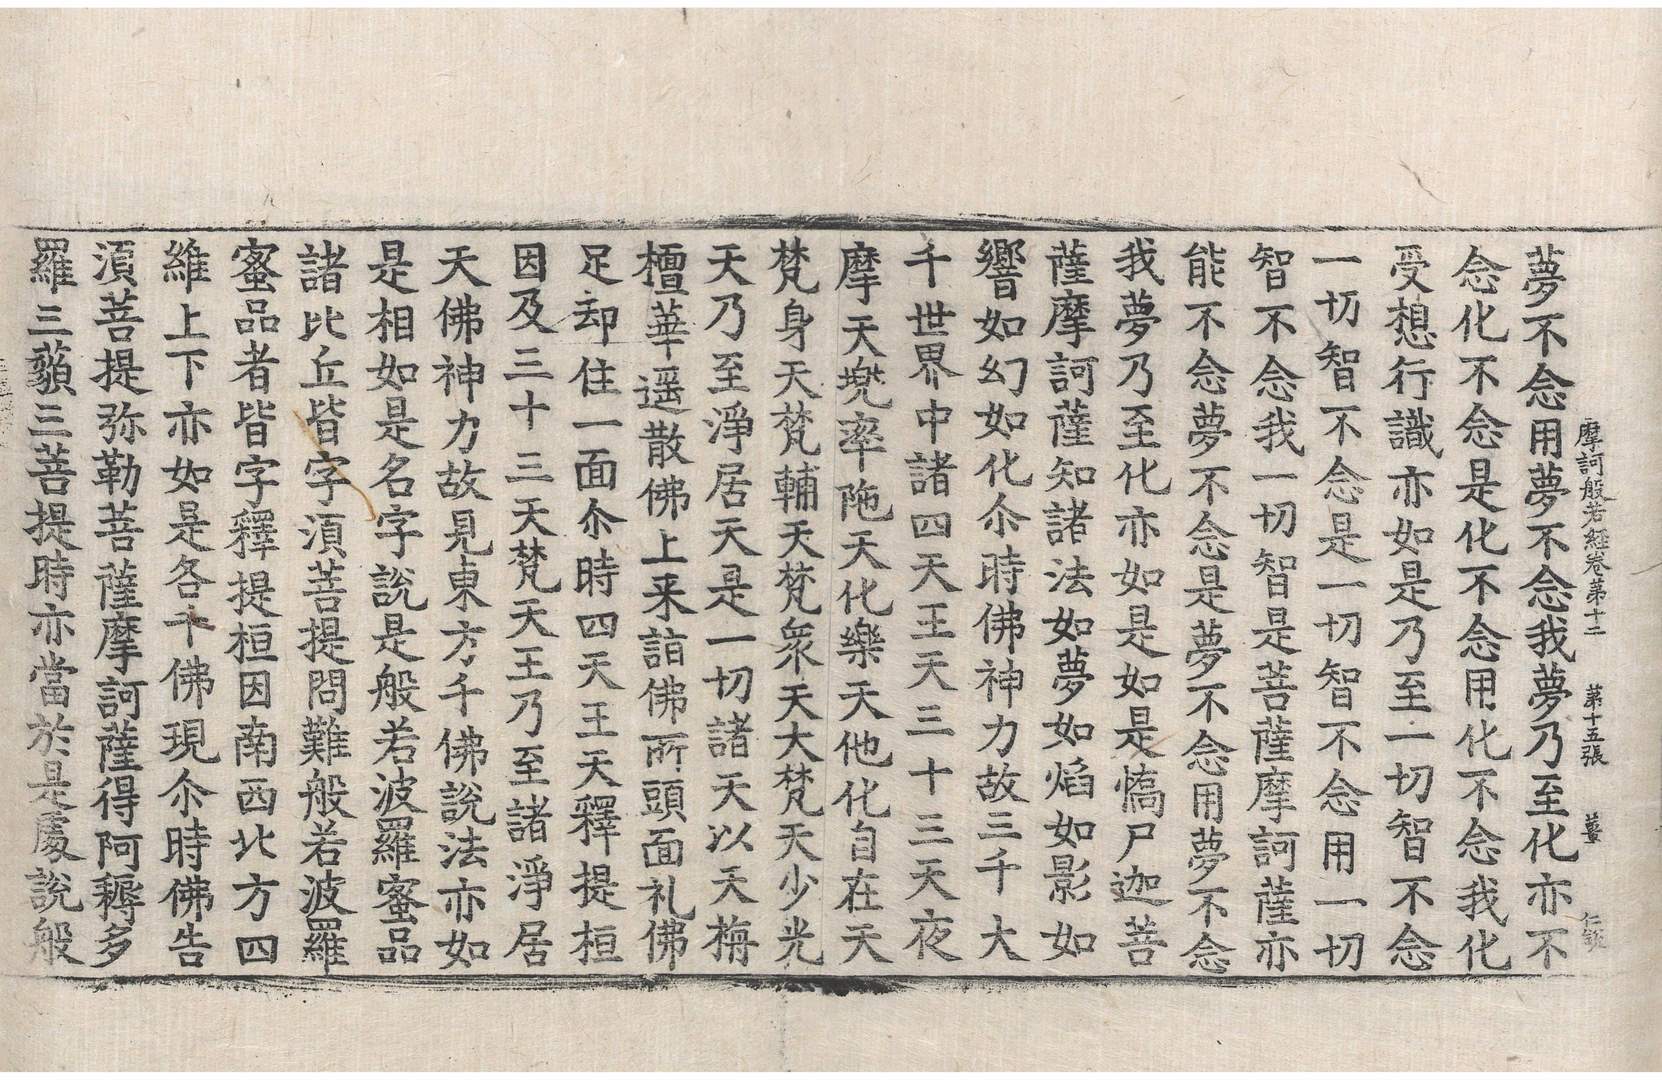 摩訶般若經卷第十二　第十五張　薑
夢不念用夢不念我夢乃至化亦不
念化不念是化不念用化不念我化
受想行識亦如是乃至一切智不念
一切智不念是一切智不念用一切
智不念我一切智是菩薩摩訶薩亦
能不念夢不念是夢不念用夢不念
我夢乃至化亦如是如是憍尸迦菩
薩摩訶薩知諸法如夢如焰如影如
響如幻如化尒時佛神力故三千大
千世界中諸四天王天三十三天夜
摩天兠率陁天化樂天他化自在天
梵身天梵輔天梵衆天大梵天少光
天乃至淨居天是一切諸天以天栴
檀華遥散佛上来詣佛所頭面礼佛
足却住一面尒時四天王天釋提桓
因及三十三天梵天王乃至諸淨居
天佛神力故見東方千佛說法亦如
是相如是名字說是般若波羅蜜品
諸比丘皆字湏菩提問難般若波羅
蜜品者皆字釋提桓因南西北方四
維上下亦如是各千佛現尒時佛告
湏菩提弥勒菩薩摩訶薩得阿耨多
羅三藐三菩提時亦當於是處說般